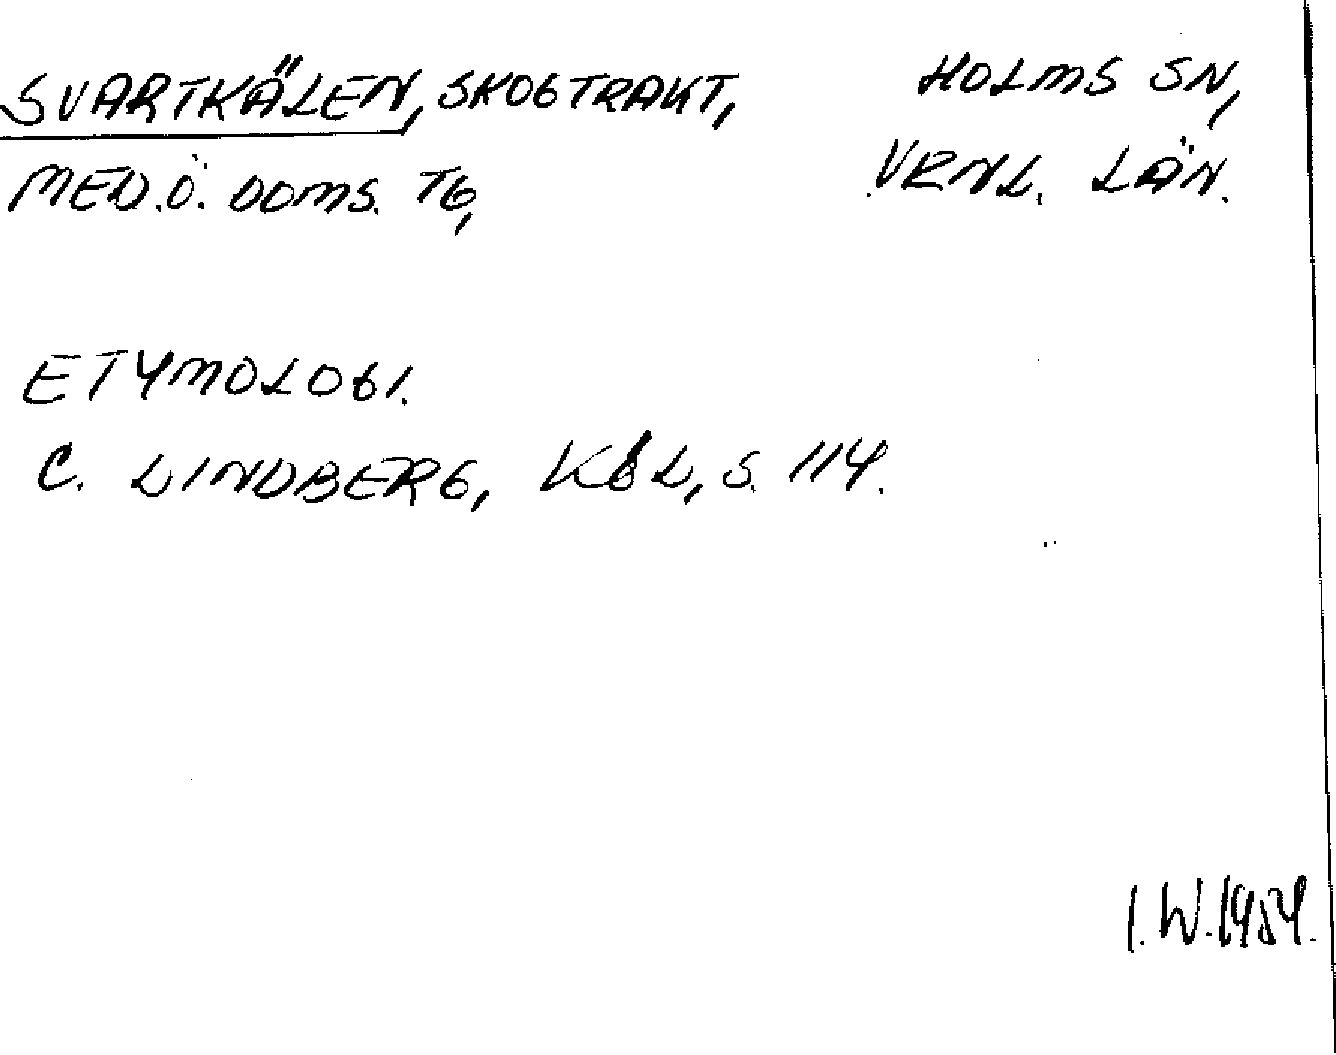 SVARTKÄLEN, SKOGTRAKT, HOLMS SN,
MED.Ö. DOMS. TG, VRNL. LÄN.
ETYMOLOGI.
C. LINDBERG, KGL, S. 114.
I.W. 1954.